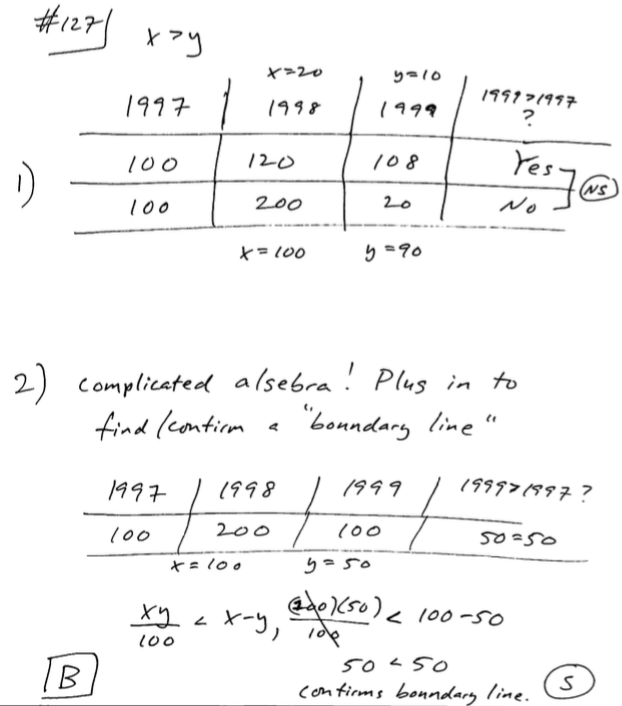 #127/ x>y
x=20 y=10
1997 1998 1999 1999>1997
?
1) 100 120 108 Yes
100 200 20 No NS
x=100 y=90
2) complicated algebra! Plug in to
find/confirm a "boundary line"
1997 1998 1999 1999>1997?
100 200 100 50=50
x=100 y=50
xy/100 < x-y, (100)(50)/100 < 100-50
50<50
B confirms boundary line. S